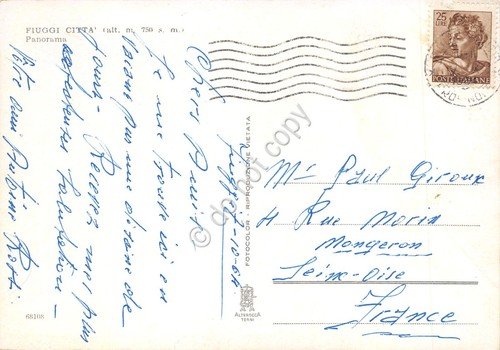 FIUGGI CITTÀ (alt. m. 750 s. m.)
Panorama
Fiuggi 4-10-64
Chers Amis
Je me trouve ici en
une dizaine de
jours. Recevez mes plus
Salutations
Votre ami
68108
FOTOCOLOR - RIPRODUZIONE VIETATA
ALTEROCCA
TERNI
25
LIRE
POSTE ITALIANE
Mr Paul Giroux
4 Rue Morin
Mongeron
Seine-Oise
France
do not copy